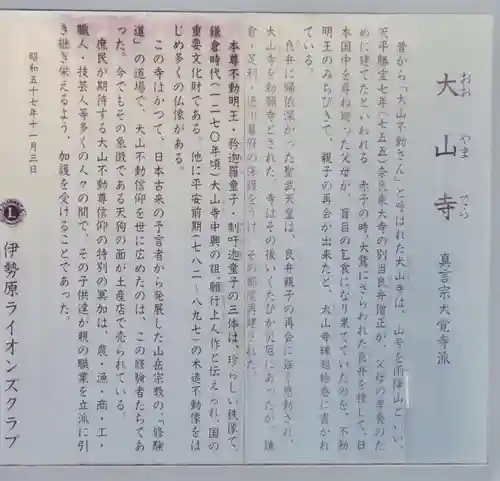 大山寺
おお やま でら
真言宗大覚寺派
昔から「大山不動さん」と呼ばれた大山寺は、山号を雨降山といい、
天平勝宝七年(七五五)奈良東大寺の別当良弁僧正が、父母の孝養のた
めに建てたといわれる。赤子の時、大鷲にさらわれた良弁を捜して、日
本国中を尋ね廻った父母が、盲目の乞食になり果てていたのを、不動
明王のみちびきで、親子の再会が出来たと、大山寺縁起絵巻に書かれ
ている。
良弁に帰依深かった聖武天皇は、良弁親子の再会に深く感動され、
大山寺を勅願寺とされた。寺はその後いくたびか火厄にあったが、鎌
倉・足利・徳川幕府の保護をうけ、その都度再建された。
本尊不動明王・矜迦羅童子・制吒迦童子の三体は、珍らしい鉄像で、
鎌倉時代(一二七〇年頃)大山寺中興の祖、願行上人作と伝えられ、国の
重要文化財である。他に平安前期(七八二〜八九七)の木造不動像をは
じめ多くの仏像がある。
この寺はかつて、日本古来の予言者から発展した山岳宗教の、「修験
道」の道場で、大山不動信仰を世に広めたのは、この修験者たちであ
った。今でもその象徴である天狗の面が土産店で売られている。
庶民が期待する大山不動尊信仰の特別の冥加は、農・漁・商・工・
職人・技芸人等多くの人々の間で、その子供達が親の職業を立派に引
き継ぎ栄えるよう、加護を受けることであった。
昭和五十七年十一月三日
L
伊勢原ライオンズクラブ